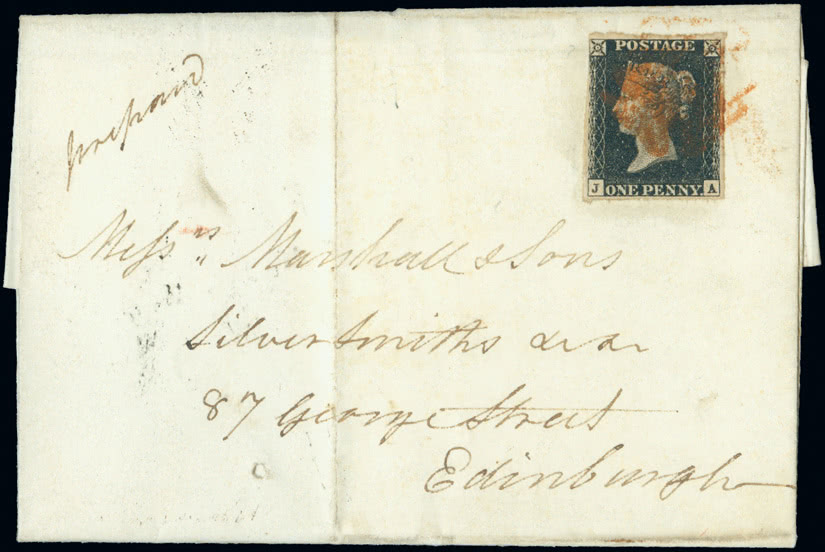 prepaid
POSTAGE
ONE PENNY
J A
Mess.rs Marshall & Sons
Silver Smiths &c &c
87 George Street
Edinburgh